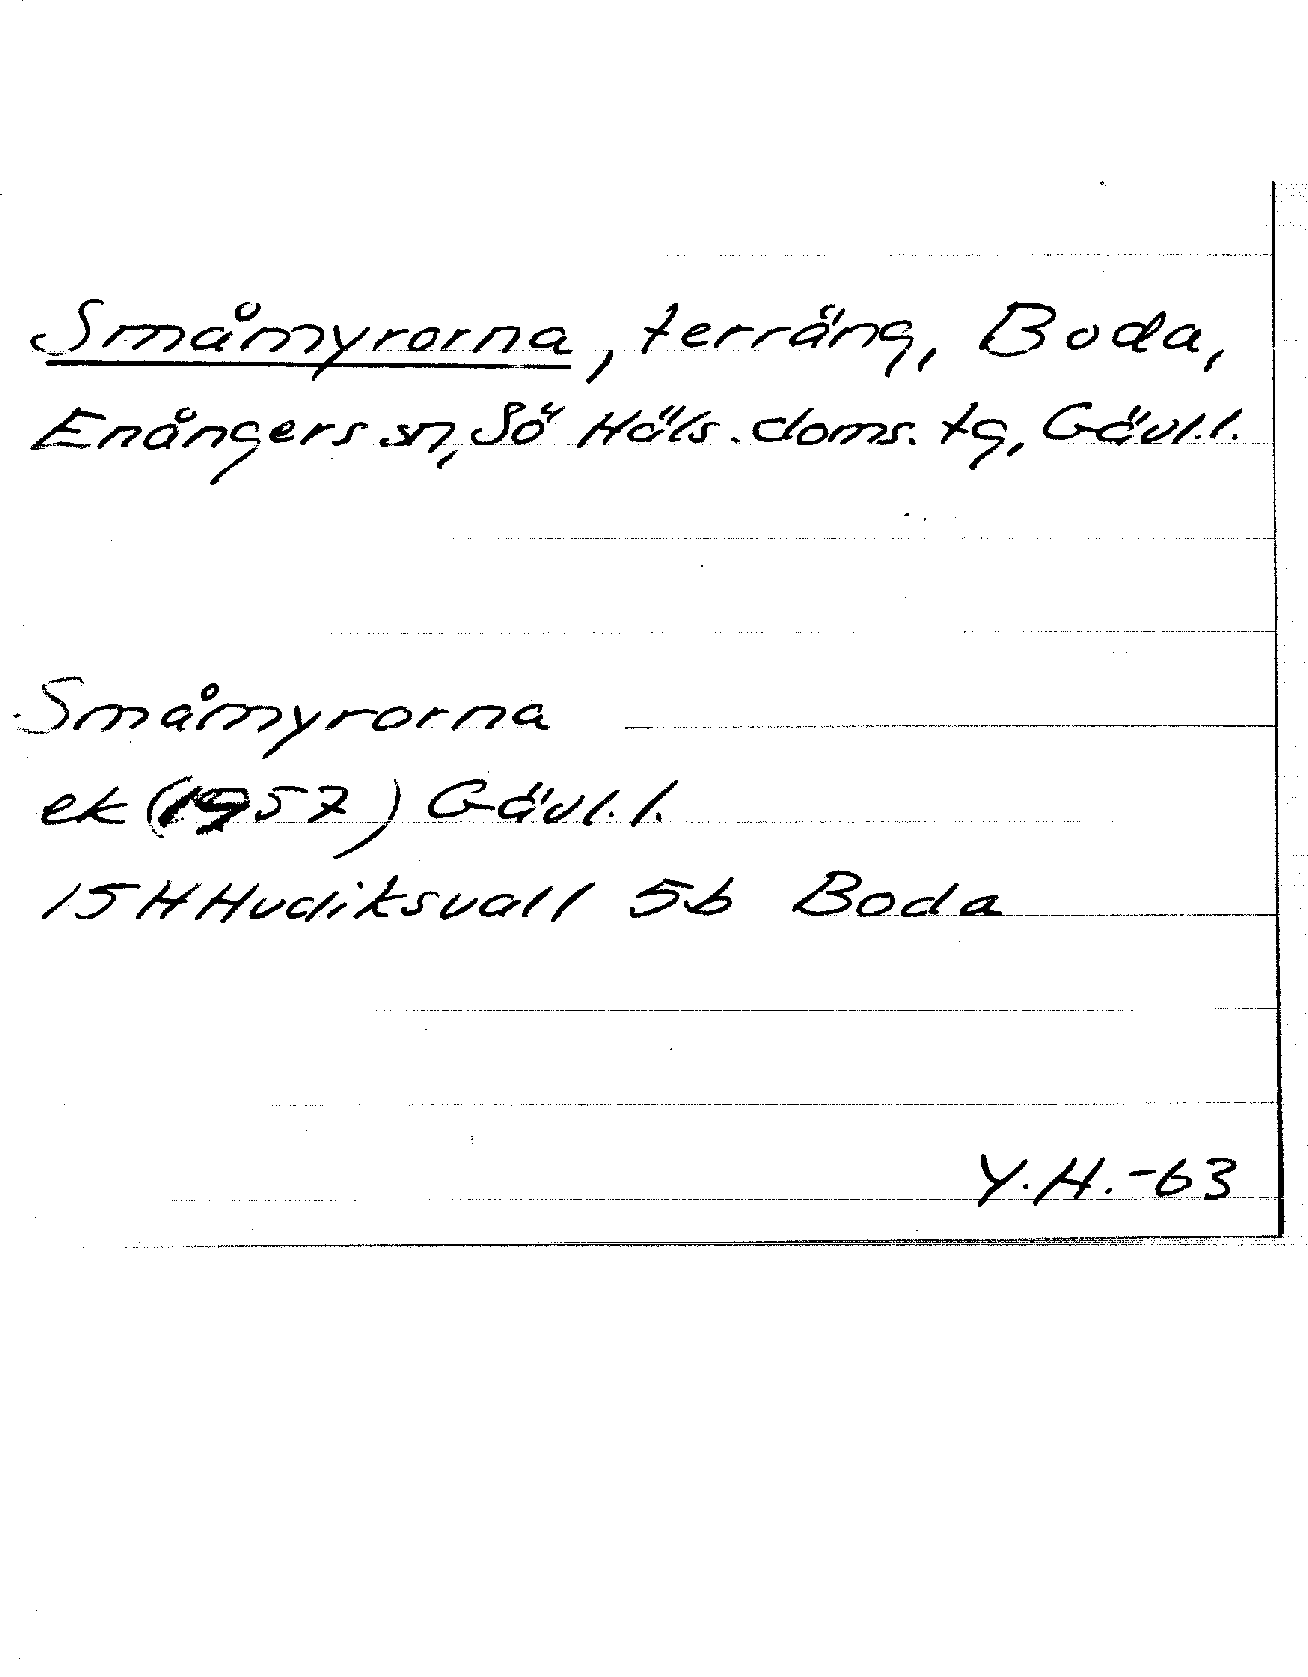 Småmyrorna, terräng, Boda,
Enångers sn, Sö Häls. doms. tg, Gävl.l.
Småmyrorna
ek (1957) Gävl.l.
15H Hudiksvall 5b Boda
Y.H.-63